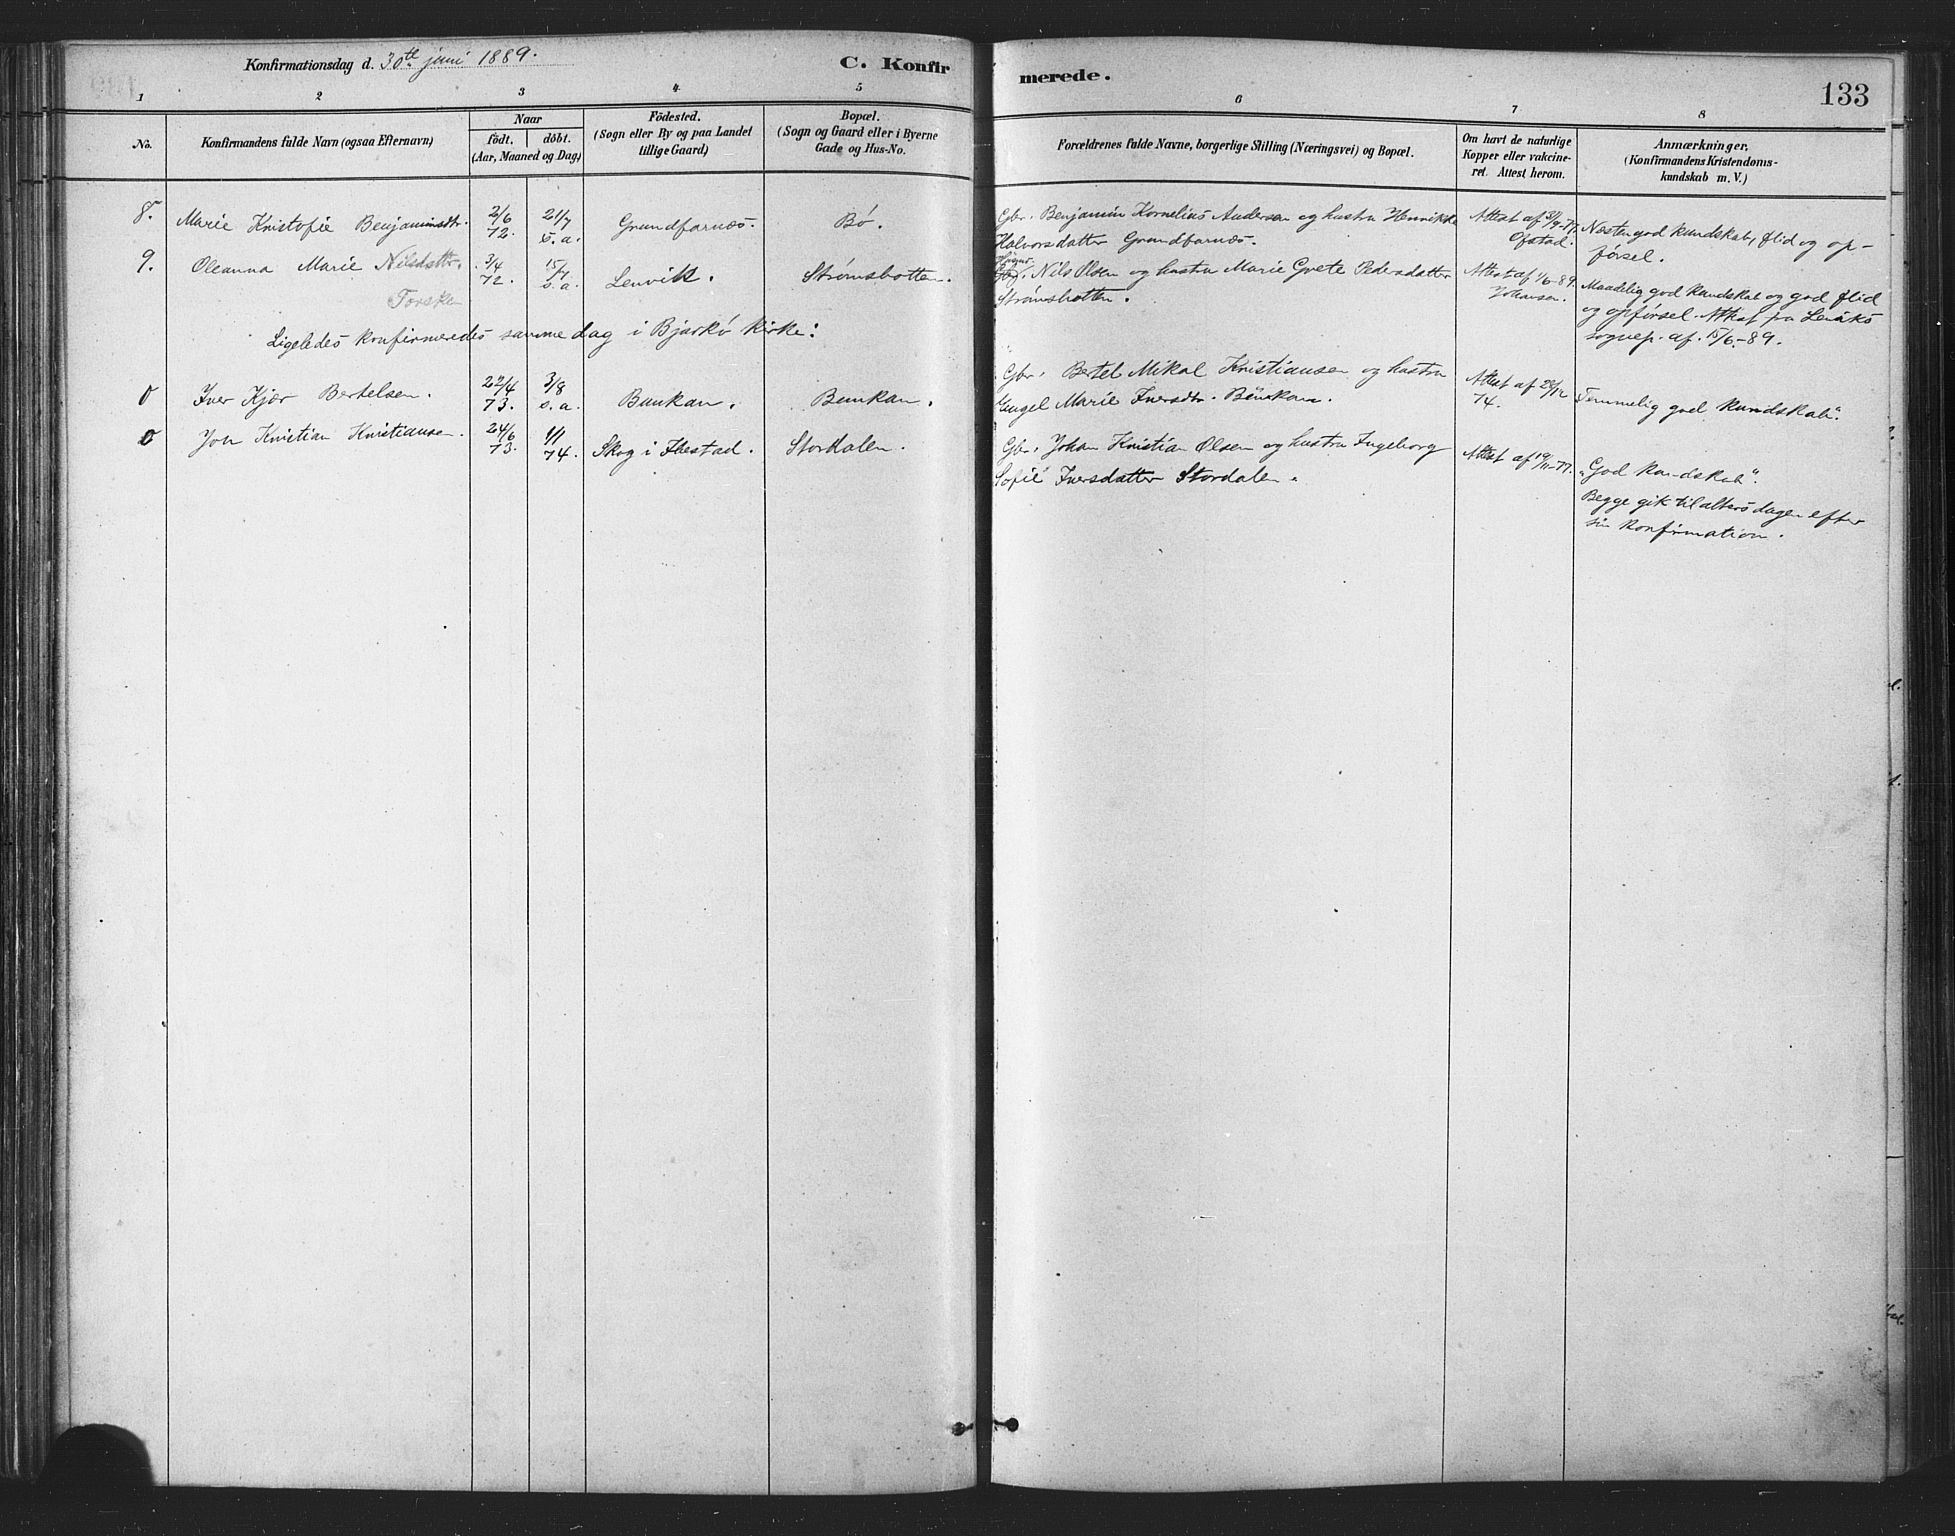 Konfirmationsdag d. 30te juni 1889.
C. Konfirmerede.
133
1 2 3 4 5 6 7 8
No.
Konfirmandens fulde Navn (ogsaa Efternavn)
Naar
födt. döbt.
(Aar, Maaned og Dag)
Födested.
(Sogn eller By og paa Landet
tillige Gaard)
Bopæl.
(Sogn og Gaard eller i Byerne
Gade og Hus-No.
Forældrenes fulde Navne, borgerlige Stilling (Næringsvei) og Bopæl.
Om havt de naturlige
Kopper eller vakcine-
ret. Attest herom.
Anmærkninger,
(Konfirmandens Kristendoms-
kundskab m. V.)
8. Marie Kristofie Benjaminsdtr. 2/6 72. 21/7 s.a. Grundfarnæs. Bö.
Gbr. Benjamin Kornelius Andersen og hustru Henrikke
Halvorsdatter Grundfarnæs.
Attest af 3/9-77.
Ofstad.
Nesten god kundskab, flid og op-
førsel.
9. Oleanna Marie Nilsdattr. 3/4 72. 15/7 s.a. Lenvik. Strømsbotten.
Torsken
Nils Olsen og hustru Marie Grete Pedersdatter
Strømsbotten.
Attest af 1/6-89.
Johansen.
Maadelig god kundskab og god flid
og opførsel. Attest fra Lenviks
sognep. af 15/6-89.
Ligeledes konfirmeredes samme dag i Bjarkö kirke:
Iver Kjær Bertelsen. 22/4 73. 3/8 s.a. Bunkan. Bunkan.
Gbr. Bertel Mikal Kristiansen og hustru
Engel Marie Iversdtr. Bunkan.
Attest af 28/12
74.
Temmelig god kundskab".
Joh Kristian Kristiansen. 24/6 73. 1/1 74. Skog i Ibestad. Stordalen.
Gbr. Johan Kristian Olsen og hustru Ingeborg
Sofie Iversdatter Stordalen.
Attest af 19/11-77.
"God kundskab".
Begge gik til alters dagen efter
sin konfirmation.